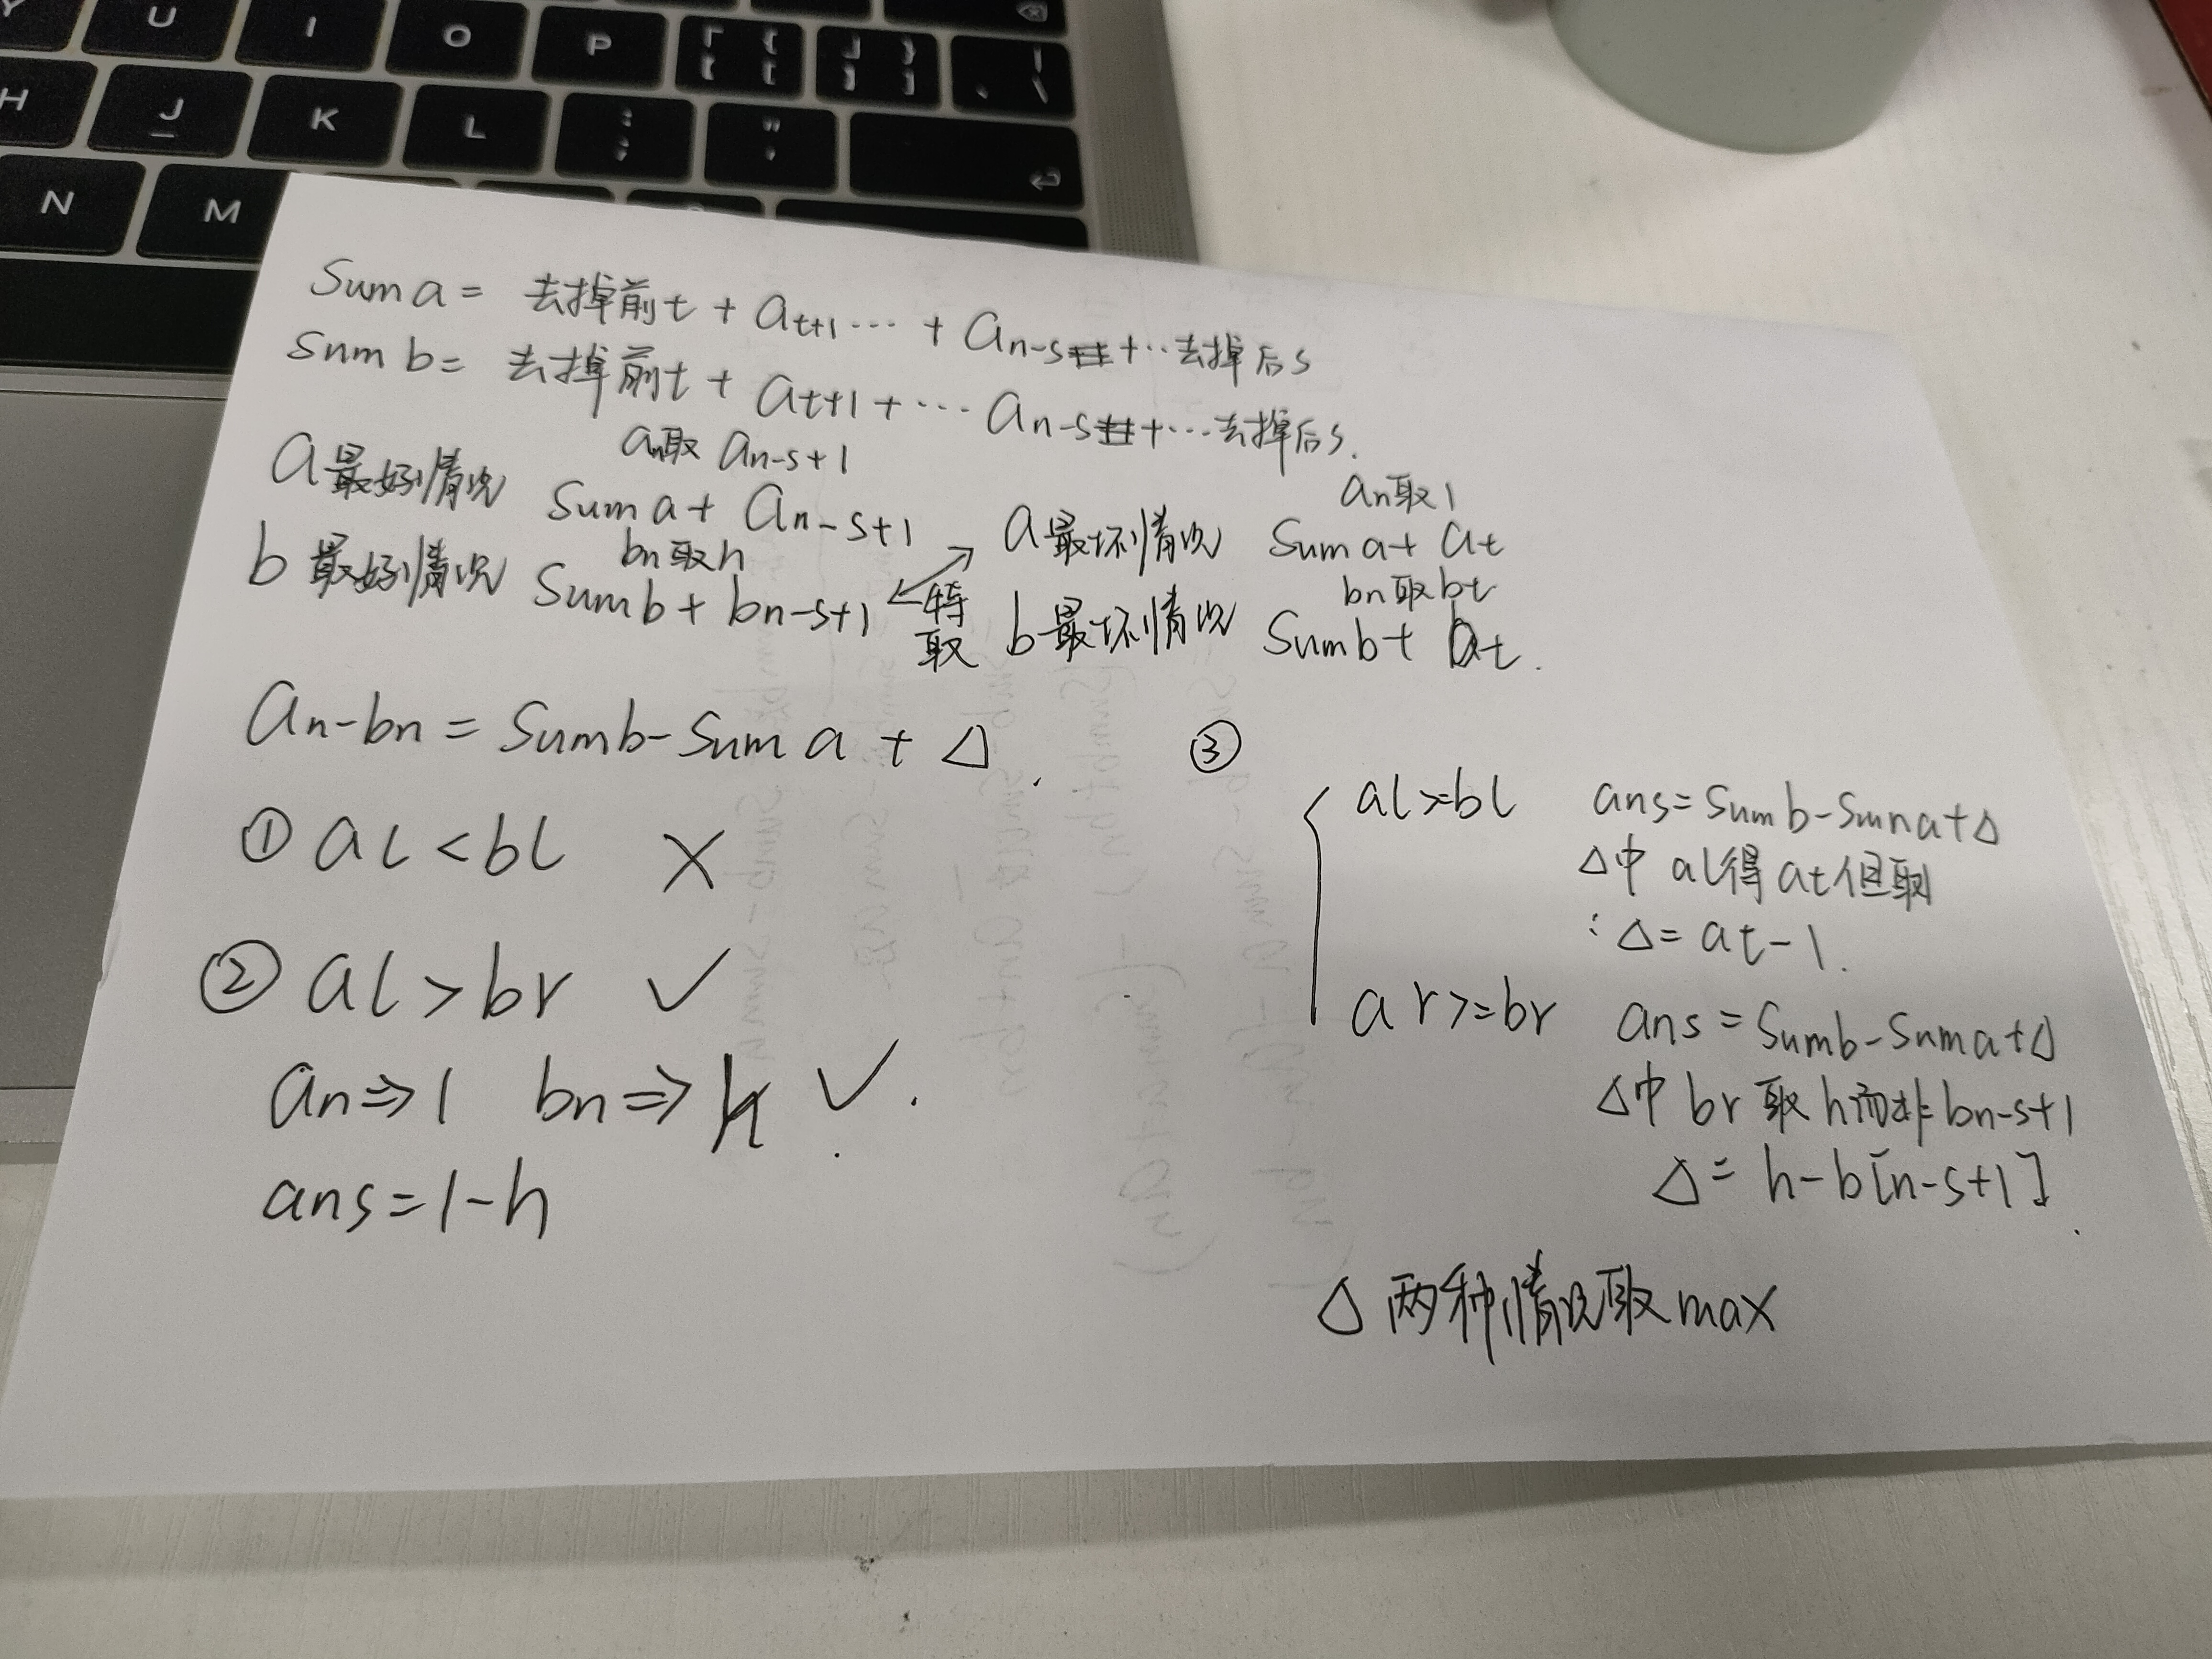 U I O P { [ } ] | \
H J K L : ; " '
N M
Sum a = 去掉前t + at+1 ··· + an-s + ·· 去掉后s
Sum b = 去掉前t + at+1 + ··· an-s + ··· 去掉后s.
an取 an-s+1
a最好情况 Sum a + an-s+1
bn取h
b最好情况 Sum b + bn-s+1
特取
an取1
a最坏情况 Sum a + at
bn取bt
b最坏情况 Sum b + bt.
an-bn = Sumb-Sum a + Δ.
① al<bl ×
② al>br ✓
an⇒1 bn⇒h ✓.
ans=1-h
③
al>=bl ans=Sumb-Suma+Δ
Δ中 al得at但取1
∴Δ= at-1.
ar>=br ans=Sumb-Suma+Δ
Δ中br取h而非bn-s+1
Δ= h-b[n-s+1].
Δ两种情况取max